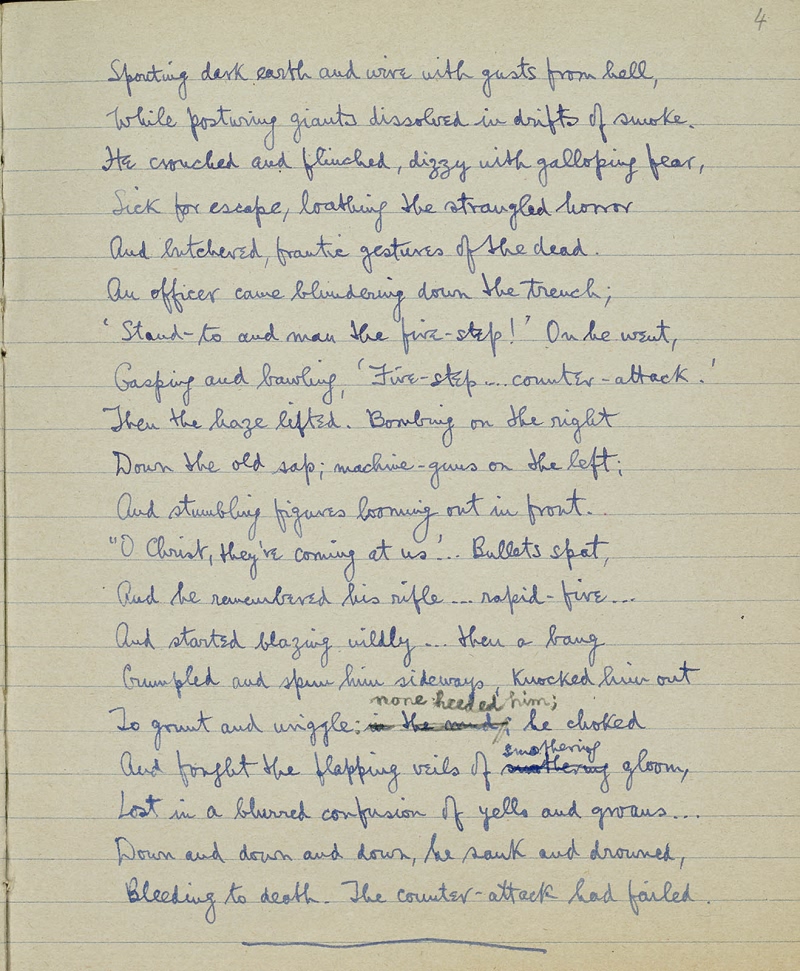 4
Spouting dark earth and wire with gusts from hell,
While posturing giants dissolved in drifts of smoke.
He crouched and flinched, dizzy with galloping fear,
Sick for escape, loathing the strangled horror
And butchered, frantic gestures of the dead.
An officer came blundering down the trench;
'Stand-to and man the fire-step!' On he went,
Gasping and bawling, 'Fire-step... counter-attack.'
Then the haze lifted. Bombing on the right
Down the old sap; machine-guns on the left;
And stumbling figures looming out in front..
"O Christ, they're coming at us'... Bullets spat,
And he remembered his rifle ... rapid-fire...
And started blazing wildly ... then a bang
Crumpled and spun him sideways, knocked him out
none heeded him;
To grunt and wriggle; in the mud; he choked
smothering
And fought the flapping veils of smothering gloom,
Lost in a blurred confusion of yells and groans...
Down and down and down, he sank and drowned,
Bleeding to death. The counter-attack had failed.